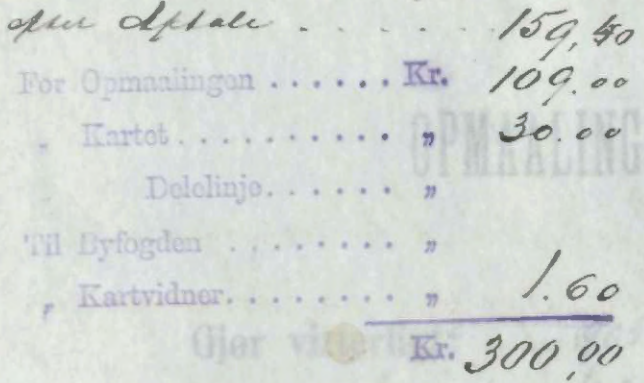 efter Aftale . . . . . 159,40
For Opmaalingen . . . . . . Kr. 109.00
„ Kartet . . . . . . . . . . . „ 30.00
OPMAALING
Delelinje. . . . . . „
Til Byfogden . . . . . . . . „
„ Kartvidner. . . . . . . . „ 1.60
Gjør
Kr. 300,00